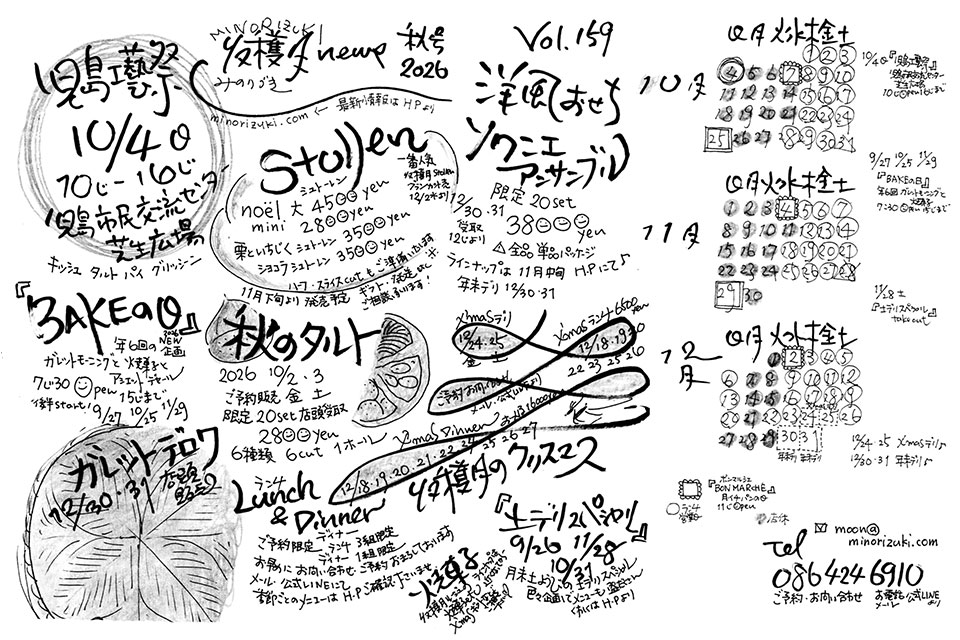 児島工藝祭
10/4日
10じ-16じ
児島市民交流センター
芝生広場
キッシュ タルト パイ グリッシーニ
MINORIZUKI
收穫月 news
みのりづき
秋号
2026
← 最新情報は H.P より
minorizuki.com
Vol.159
Stollen
シュトーレン
noël 大 4500yen
mini 2800yen
栗といちじくシュトーレン 3500yen
ショコラシュトーレン 3500yen
ハーフ・スライスcutもご準備います
11月下旬より発売予定
一番人気
12/2水より
洋風おせち
ソワニエ
アンサンブル
限定 20set
12/30.31
受取
12じより
3800yen
⚠全品単品パッケージ
ラインナップは 11月中旬 H.P.にて♪
年末デリ 12/30・31
『BAKEの日』
年6回の
2026
NEW
企画
ガレットモーニングと焼菓子と
7じ30 open 15じまで
後半start! 9/27 10/25 11/29
秋のタルト
2026 10/2・3
ご予約販売 金 土
限定 20set 店頭受取
2800yen
6種類 6cut 1ホール
X'masデリ
12/24.25
X'masランチ 6500yen
12/18.19.20
22 23 25 26
ご予約お問い合わせ
X'mas Dinner
12/18.19.20.21.22.23.24.25.26.27
收穫月のクリスマス
ガレットデロワ
12/30・31
ランチ
Lunch
& Dinner
ディナー
ご予約限定 ランチ 3組限定
ディナー 1組限定
お気軽に お問い合わせ・ご予約 お待ちしております
メール・公式LINEにて
季節ごとのメニューは H.P.ご確認下さいませ
焼菓子
『土デリスペシャル』
9/26 11/28
10/31
月末土ようびの土デリスペシャル
くわしくは H.Pより
10月
日 月 火 水 木 金 土
1 2 3
4 5 6 7 8 9 10
11 12 13 14 15 16 17
18 19 20 21 22 23 24
25 26 27 28 29 30 31
10/4日『児島工藝祭』
児島市民交流センター
芝生広場
10じopen16じまで
9/27 10/25 11/29
『BAKEの日』
年6回 ガレットモーニングと
焼菓子
7:30 open 15じまで
11月
日 月 火 水 木 金 土
1 2 3 4 5 6 7
8 9 10 11 12 13 14
15 16 17 18 19 20 21
22 23 24 25 26 27 28
29 30
11/28土
『土デリスペシャル』
take out
12月
日 月 火 水 木 金 土
1 2 3 4 5
6 7 8 9 10 11 12
13 14 15 16 17 18 19
20 21 22 23 24 25 26
27 28 29 30 31
年末デリ 年末デリ
12/24・25 X'masデリ♪
12/30・31 年末デリ♪
ボンマルシェ
『BON MARCHE』
月イチパンの日
11じopen
ランチ
営業
店休
moon@
minorizuki.com
Tel
0864246910
ご予約・お問い合わせ
お電話 公式LINE
メール